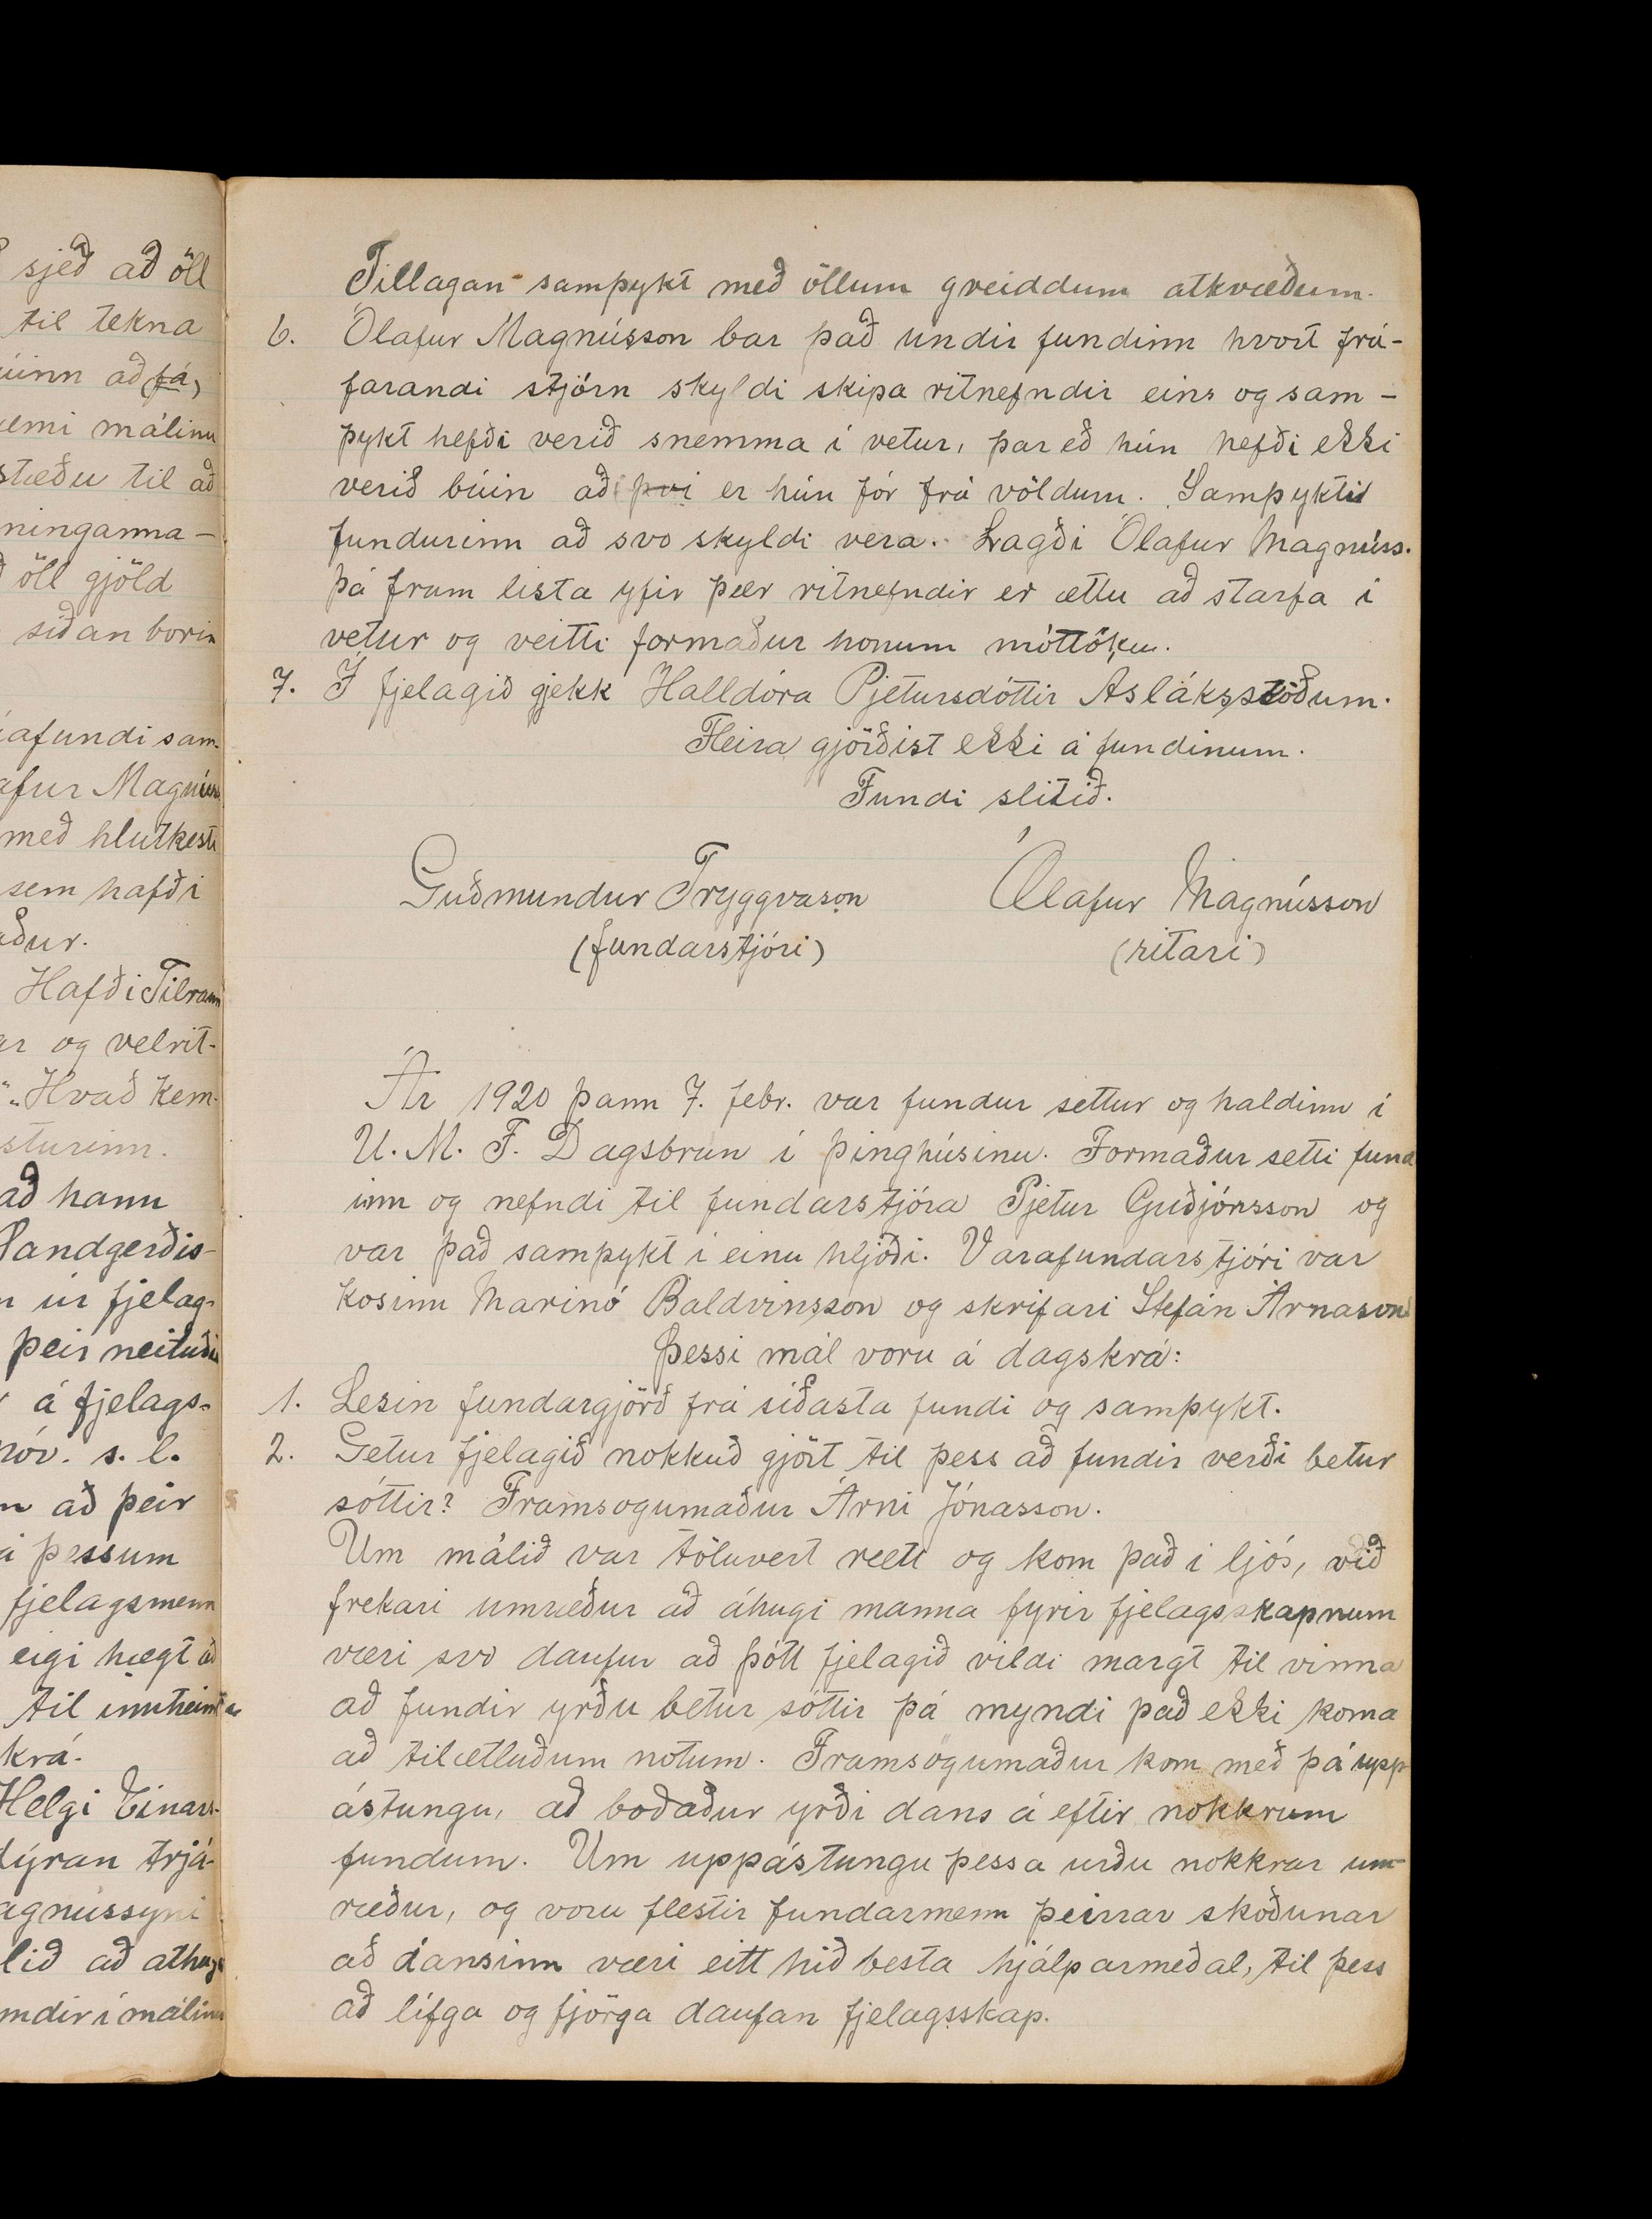 sjeð að öll
til tekna
að fá,
málinu
til að
öll gjöld
síðan borin
með hlutkesti
sem hafði
Hafði
og velrit-
Hvað kem-
að hann
úr fjelag-
þeir neituðu
á fjelags-
nóv. s. l.
að þeir
á þessum
fjelagsmenn
eigi hægt að
til
Helgi Einars-
að
í málinu
Tillagan samþykt með öllum greiddum atkvæðum.
6. Ólafur Magnússon bar það undir fundinn hvort frá-
farandi stjórn skyldi skipa ritnefndir eins og sam-
þykt hefði verið snemma í vetur, þar eð hún hefði ekki
verið búin að því er hún fór frá völdum. Samþykti
fundurinn að svo skyldi vera. Lagði Ólafur Magnúss.
þá fram lista yfir þær ritnefndir er ættu að starfa í
vetur og veitti formaður honum móttöku.
7. Í fjelagið gjekk Halldóra Pjetursdóttir Asláksstöðum.
Fleira gjörðist ekki á fundinum.
Fundi slitið.
Guðmundur Tryggvason Ólafur Magnússon
(fundarstjóri) (ritari)
Ár 1920 þann 7. febr. var fundur settur og haldinn í
U. M. F. Dagsbrun í þinghúsinu. Formaður setti fund
inn og nefndi til fundarstjóra Pjetur Guðjónsson og
var það samþykt í einu hljóði. Varafundarstjóri var
kosinn Marinó Baldvinsson og skrifari Stefán Árnason
Þessi mál voru á dagskrá:
1. Lesin fundargjörð frá síðasta fundi og samþykt.
2. Getur fjelagið nokkuð gjört til þess að fundir verði betur
sóttir? Framsogumaður Árni Jónasson.
Um málið var töluvert rætt og kom það í ljós, við
frekari umræður að áhugi manna fyrir fjelagsskapnum
væri svo daufur að þótt fjelagið vildi margt til vinna
að fundir yrðu betur sóttir þá myndi það ekki koma
að tilætluðum notum. Framsögumaður kom með þá upp
ástungu, að boðaður yrði dans á eftir nokkrum
fundum. Um uppástungu þessa urðu nokkrar um-
ræður, og voru flestir fundarmenn þeirrar skoðunar
að dansinn væri eitt hið besta hjálparmeðal, til þess
að lífga og fjörga daufan fjelagsskap.